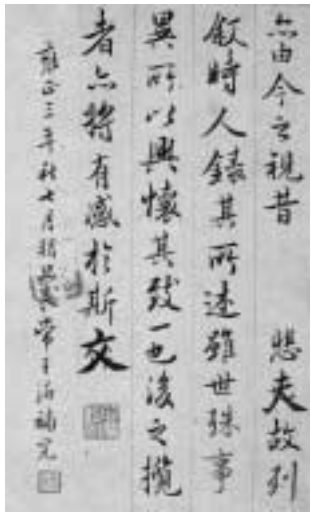 亦由今之視昔 悲夫故列
叙時人錄其所述雖世殊事
異所以興懷其致一也後之攬
者亦將有感於斯文
雍正三年秋七月 常王澍